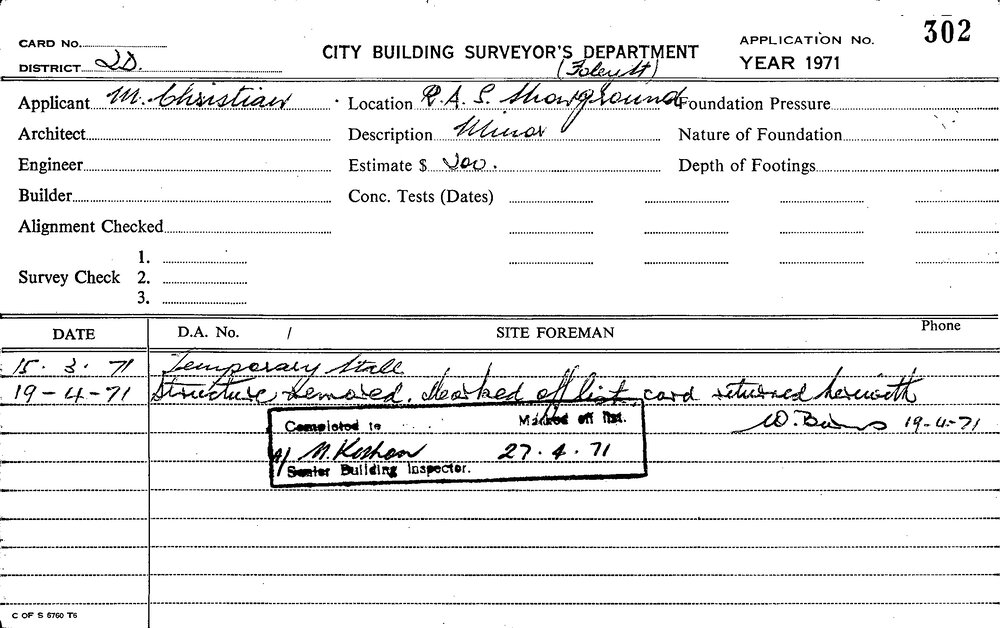 CARD No.
DISTRICT 2D.
CITY BUILDING SURVEYOR'S DEPARTMENT
APPLICATION No. 302
YEAR 1971
Applicant M. Christian
Location R.A.S. Showground
Foundation Pressure
Architect
Description Minor
Nature of Foundation
Engineer
Estimate $ 200.
Depth of Footings
Builder
Conc. Tests (Dates)
Alignment Checked
Survey Check 1.
2.
3.
DATE D.A. No. / SITE FOREMAN Phone
15. 3. 71 Temporary Stall
19-4-71 Structure removed. Marked off list, card returned herewith
19-4-71
Completed to Marked off list.
27.4.71
Senior Building Inspector.
C OF S 6760 T6